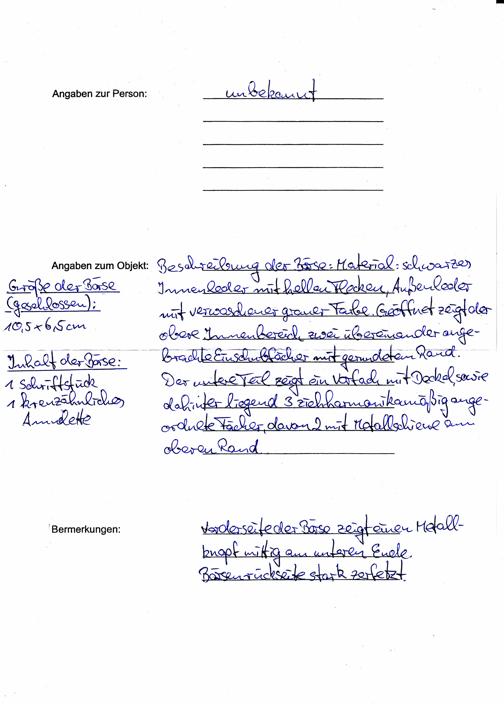 Angaben zur Person: unbekannt
Angaben zum Objekt: Beschreibung der Börse: Material: schwarzes
Innenleder mit hellen Flecken, Außenleder
mit verwaschener grauer Farbe. Geöffnet zeigt der
obere Innenbereich zwei übereinander ange-
brachte Einschubfächer mit gerundetem Rand.
Der untere Teil zeigt ein Vorfach mit Deckel sowie
dahinter liegend 3 ziehharmonikamäßig ange-
ordnete Fächer, davon 2 mit Metallschiene am
oberen Rand
Größe der Börse
(geschlossen):
10,5 x 6,5 cm
Inhalt der Börse:
1 Schriftstück
1 kreuzähnliches
Amulette
Bermerkungen: Vorderseite der Börse zeigt einen Metall-
knopf mittig am unteren Ende.
Börsenrückseite stark zerfetzt.